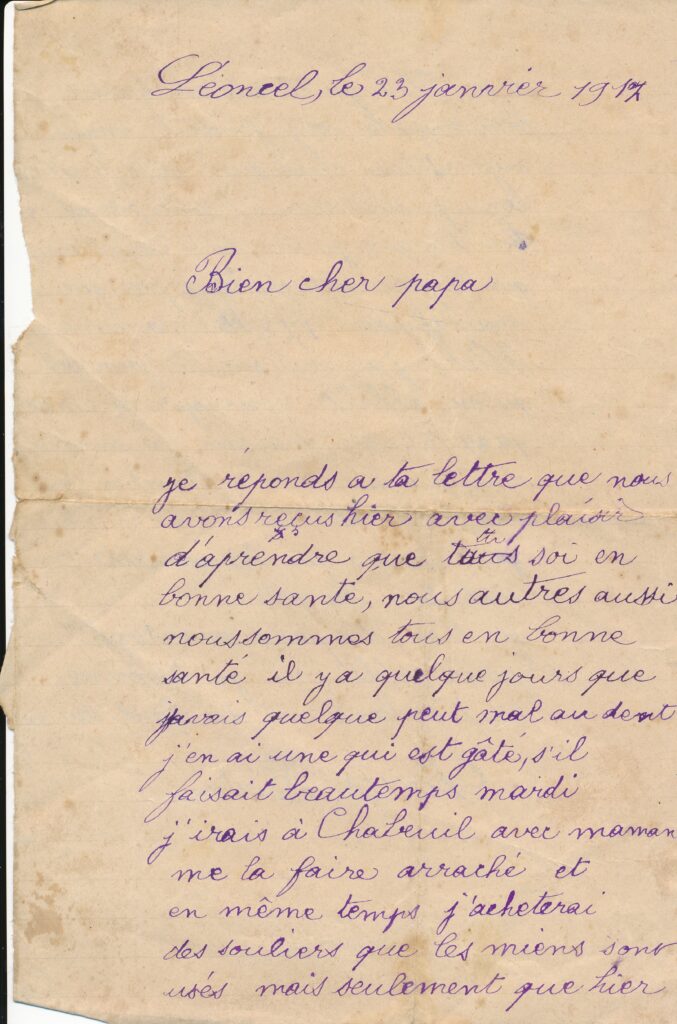 Léoncel, le 23 janvier 1917
Bien cher papa
je réponds a ta lettre que nous
avons reçus hier avec plaisir
d'aprendre que tu soi en
bonne santé, nous autres aussi
noussommes tous en bonne
santé il ya quelque jours que
javais quelque peut mal au dent
j'en ai une qui est gâté, s'il
faisait beautemps mardi
j'irais à Chabeuil avec maman
me la faire arraché et
en même temps j'acheterai
des souliers que les miens sont
usés mais seulement que hier